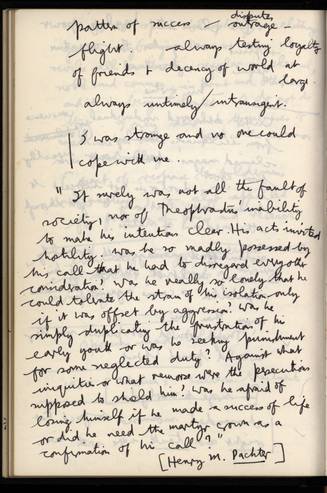 pattern of success / disputes
outrage -
flight. always testing loyalty
of friends & decency of world at
large.
always untimely/intransigent.
I was strange and no one could
cope with me.
" It surely was not all the fault of
society, nor of Theophrastus' inability
to make his intentions clear. His acts invited
hostility. was he so madly possessed by
his call that he had to disregard every other
consideration? was he really so lonely that he
could tolerate the strain of his isolation only
if it was offset by aggression? was he
simply duplicating the frustration of his
early youth or was he seeking punishment
for some neglected duty? Against what
iniquities or what remorse were the persecutions
supposed to shield him? was he afraid of
losing himself if he made a success of life
or did he need the martyr crown as a
confirmation of his call?"
[Henry M. Pachter]